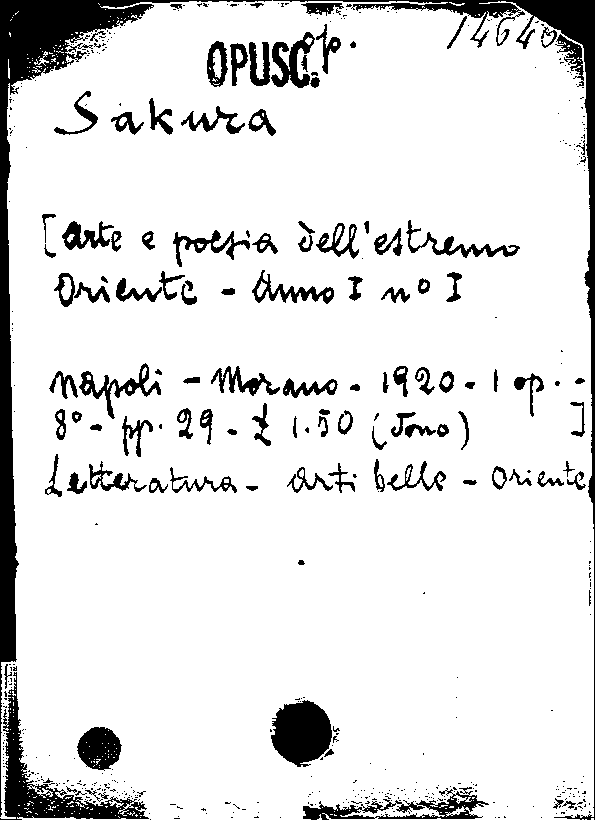 14640
OPUSC. op.
Sakura
[Arte e poesia dell'estremo
Oriente - Anno I nº I
Napoli - Morano - 1920 - 1 op. -
8º - pp. 29 - £ 1.50 (Dono) ]
Letteratura - Arti belle - Oriente